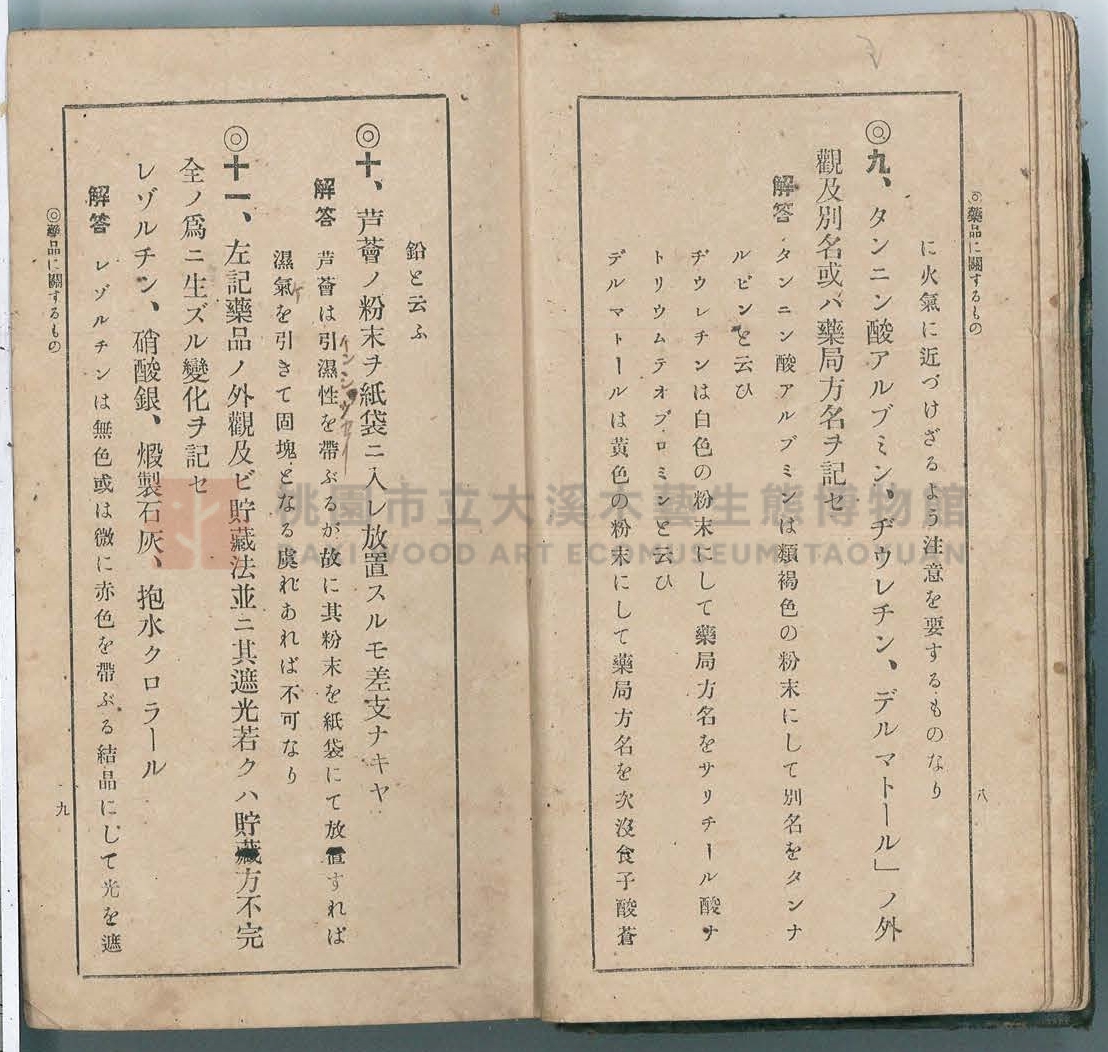 ◎藥品に關するもの
八
に火氣に近づけざるよう注意を要するものなり
◎九、タンニン酸アルブミン、ヂウレチン、デルマトール」ノ外
觀及別名或バ藥局方名ヲ記セ
解答 タンニン酸アルブミンは類褐色の粉末にして別名をタンナ
ルビンと云ひ
ヂウレチンは白色の粉末にして藥局方名をサリチール酸ナ
トリウムテオブロミンと云ひ
デルマトールは黃色の粉末にして藥局方名を次沒食子酸蒼
鉛と云ふ
◎十、芦薈ノ粉末ヲ紙袋ニ入レ放置スルモ差支ナキヤ
解答 芦薈は引濕性を帶ぶるが故に其粉末を紙袋にて放置すれば
濕氣を引きて固塊となる虞れあれば不可なり
◎十一、左記藥品ノ外觀及ビ貯藏法並ニ其遮光若クハ貯藏方不完
全ノ爲ニ生ズル變化ヲ記セ
レゾルチン、硝酸銀、煆製石灰、抱水クロラール
解答 レゾルチンは無色或は微に赤色を帶ぶる結晶にして光を遮
◎藥品に關するもの
九
桃園市立大溪木藝生態博物館
DAXI WOOD ART ECOMUSEUM, TAOYUAN